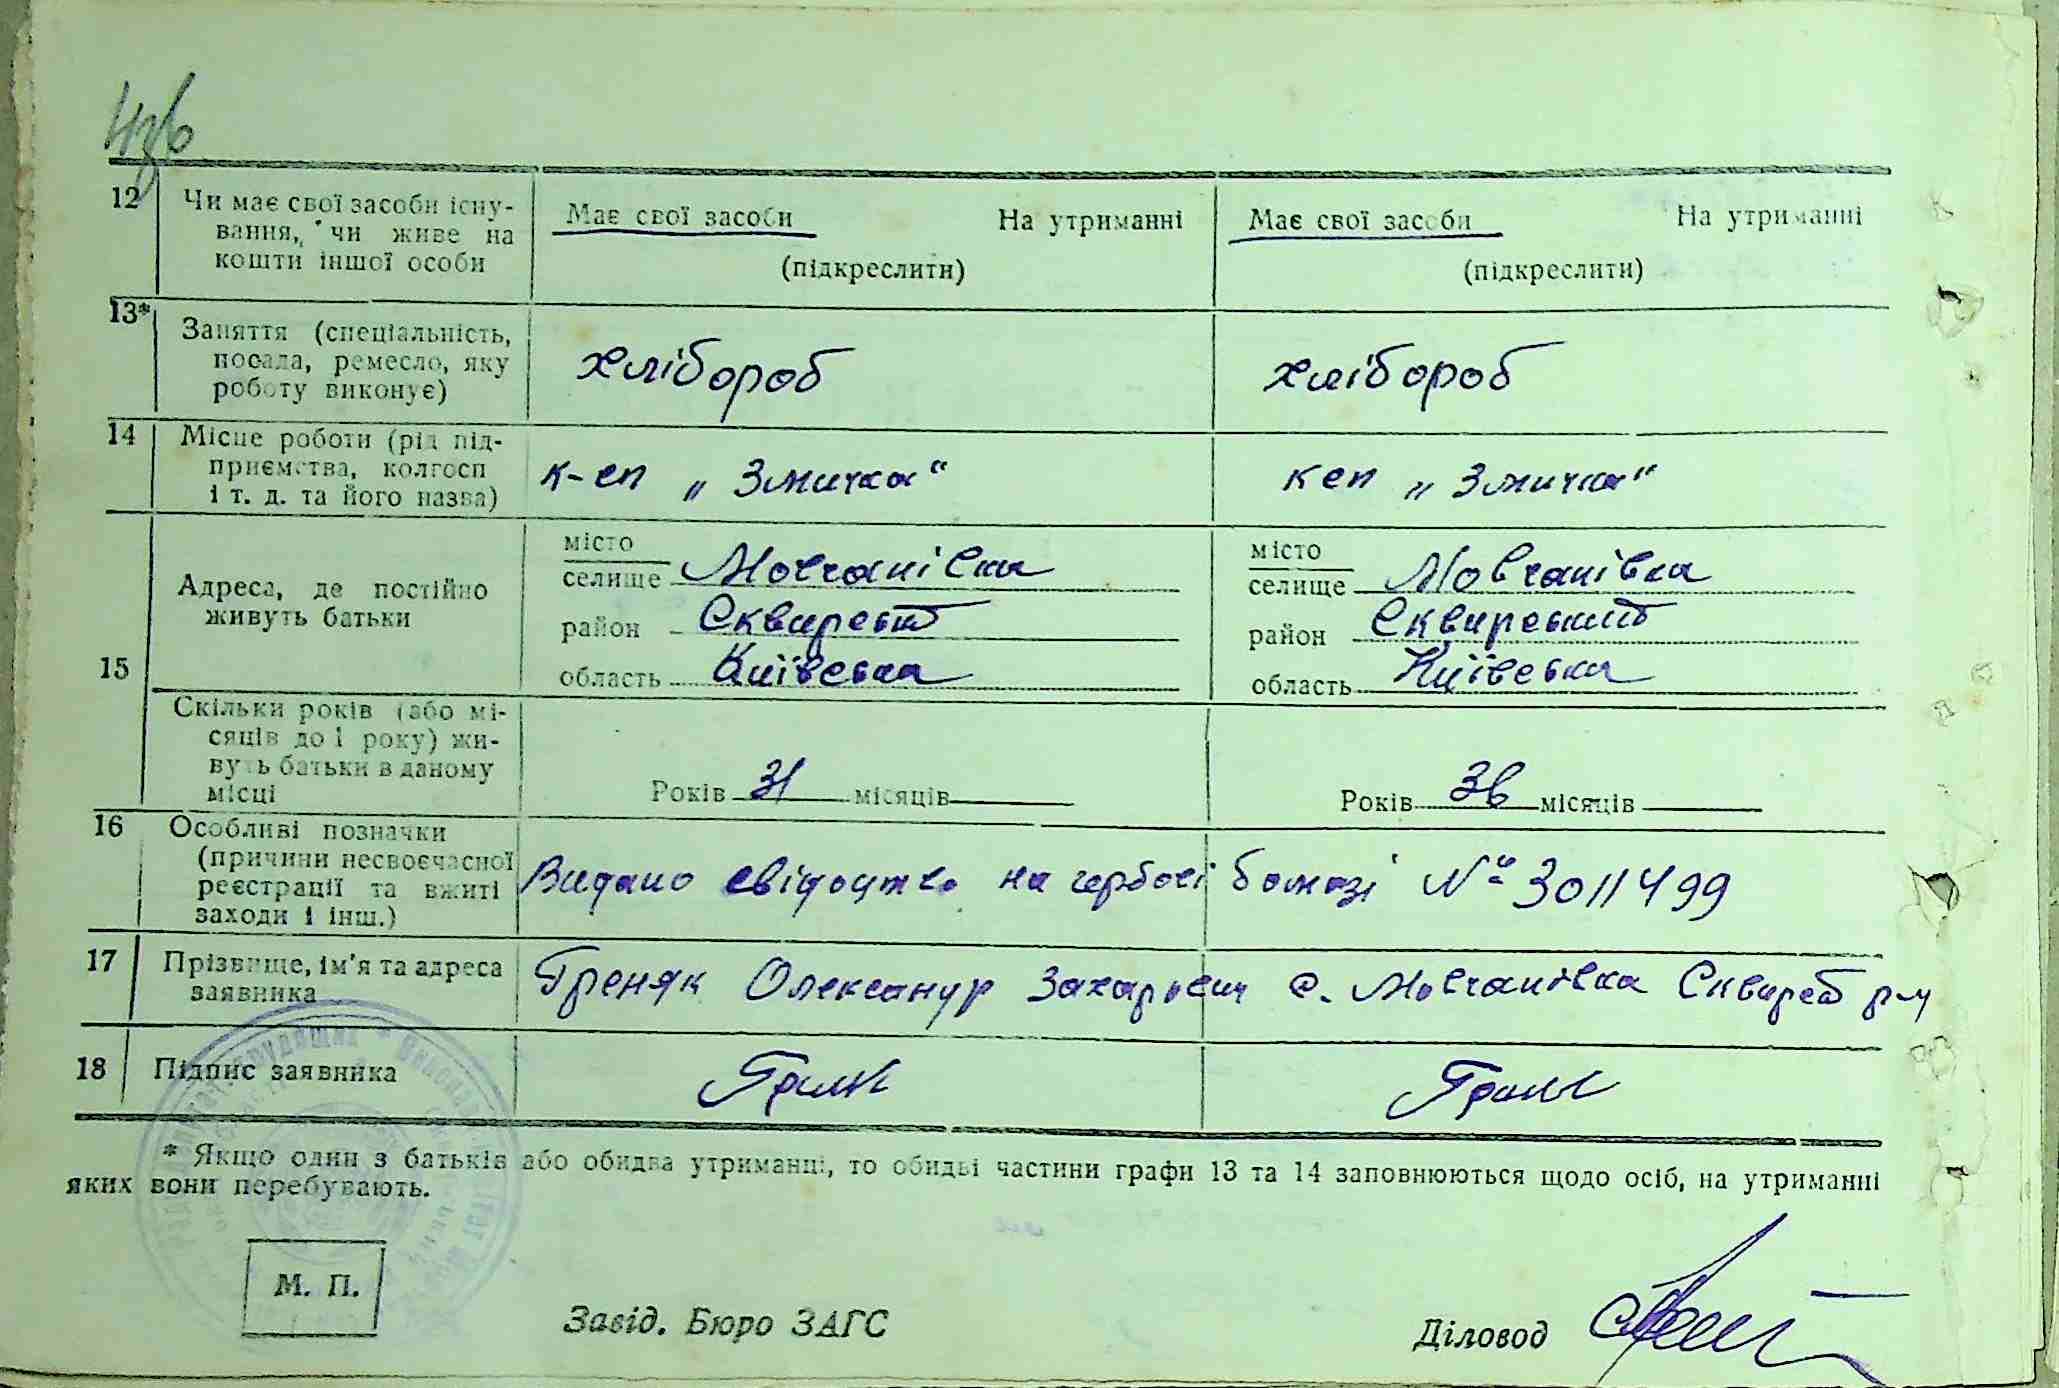 12 Чи має свої засоби існу-
вання, чи живе на
кошти іншої особи
Має свої засоби На утриманні
(підкреслити)
Має свої засоби На утриманні
(підкреслити)
13* Заняття (спеціальність,
посада, ремесло, яку
роботу виконує)
хлібороб
хлібороб
14 Місце роботи (рід під-
приємства, колгосп
і т. д. та його назва)
к-сп „Змичка“
ксп „Змичка“
15 Адреса, де постійно
живуть батьки
місто
селище Мовчанівка
район Сквирськ
область Київська
місто
селище Мовчанівка
район Сквирський
область Київська
Скільки років (або мі-
сяців до 1 року) жи-
вуть батьки в даному
місці
Років 31 місяців
Років 36 місяців
16 Особливі позначки
(причини несвоєчасної
реєстрації та вжиті
заходи і інш.)
Видано свідоцтво на гербові бомазі № 3011499
17 Прізвище, ім'я та адреса
заявника
Греняк Олександр Захарович с. Мовчанівка Сквирсь р-н
18 Підпис заявника
* Якщо один з батьків або обидва утриманці, то обидві частини графи 13 та 14 заповнюються щодо осіб, на утриманні
яких вони перебувають.
М. П.
Завід. Бюро ЗАГС
Діловод